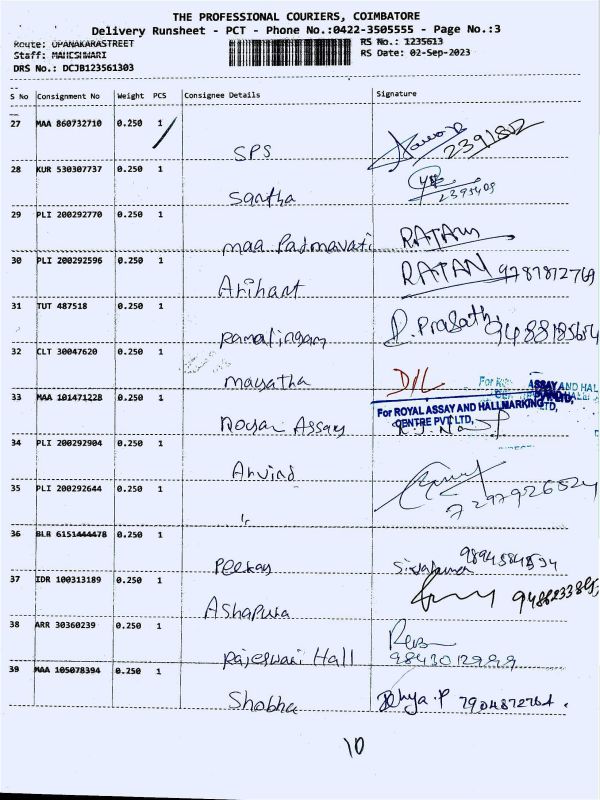 THE PROFESSIONAL COURIERS, COIMBATORE
Delivery Runsheet - PCT - Phone No.:0422-3505555 - Page No.:3
Route: OPANAKARASTREET RS No.: 1235613
Staff: MAHESWARI RS Date: 02-Sep-2023
DRS No.: DCJB123561303
S No Consignment No Weight PCS Consignee Details Signature
27 MAA 860732710 0.250 1
SPS
28 KUR 530307737 0.250 1
Santha
29 PLI 200292770 0.250 1
maa Padmavati RATAN
30 PLI 200292596 0.250 1
Arihant RATAN 9787872769
31 TUT 487518 0.250 1
Ramalingam P. Prasath
32 CLT 30047620 0.250 1
mayatha D/L
33 MAA 101471228 0.250 1
For ROYAL ASSAY AND HALLMARKING
CENTRE PVT LTD,
Royal Assay
34 PLI 200292904 0.250 1
Arvind
35 PLI 200292644 0.250 1
36 BLR 6151444478 0.250 1
Peekay
37 IDR 100313189 0.250 1
Ashapura
38 ARR 30360239 0.250 1
Rajeswari Hall
39 MAA 105078394 0.250 1
Shobha 7904872764.
10